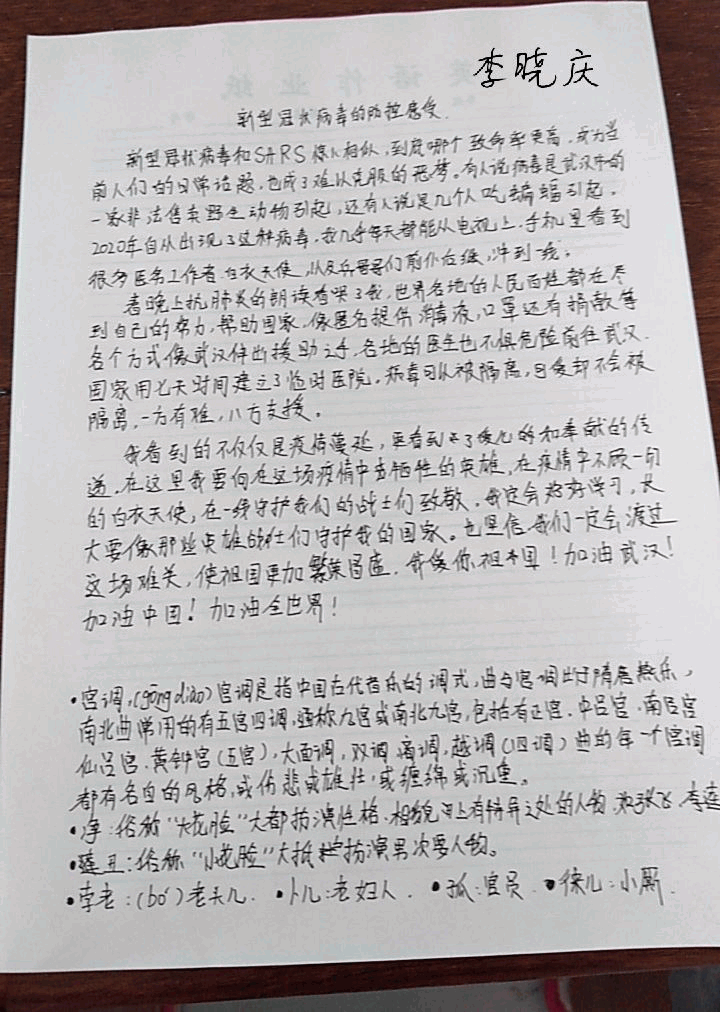 李晓庆
新型冠状病毒的防控感受
新型冠状病毒和SARS惊人相似，到底哪个致命率更高，成为当
前人们的日常话题，也成了难以克服的恶梦。有人说病毒是武汉市的
一家非法售卖野生动物引起，还有人说是几个人吃蝙蝠引起。
2020年自从出现了这种病毒，我几乎每天都能从电视上，手机里看到
很多医务工作者，白衣天使，以及兵哥哥们前仆后继，冲到一线；
看晚上抗肺炎的朗读看哭了我，世界各地的人民百姓都在尽
到自己的努力，帮助国家，像匿名提供消毒液，口罩还有捐款等
各个方式像武汉伸出援助之手，各地的医生也不惧危险前往武汉。
国家用七天时间建立了临时医院。病毒可以被隔离，可爱却不会被
隔离，一方有难，八方支援。
我看到的不仅仅是疫情蔓延，更看到了爱心的和奉献的传
递，在这里我要向在这场疫情中去牺牲的英雄，在疫情中不顾一切
的白衣天使，在一线守护我们的战士们致敬。我定会好好学习，长
大要像那些英雄战士们守护我的国家。也坚信我们一定会渡过
这场难关，使祖国更加繁荣昌盛，我爱你祖国！加油武汉！
加油中国！加油全世界！
•宫调，(gōng diào)宫调是指中国古代音乐的调式，曲与宫调出于隋唐燕乐，
南北曲常用的有五宫四调，通称九宫或南北九宫，包括有正宫、中吕宫、南吕宫
仙吕宫、黄钟宫(五宫)，大面调，双调，商调，越调(四调)曲的每一个宫调
都有各自的风格，或伤悲或雄壮，或缠绵或沉重。
•净：俗称“大花脸”大都扮演性格、相貌上有特异之处的人物，如张飞，李逵
•丑：俗称“小花脸”大抵扮演男次要人物。
•孛老：(bó)老头儿 •卜儿：老妇人 •孤：官员 •徕儿：小厮